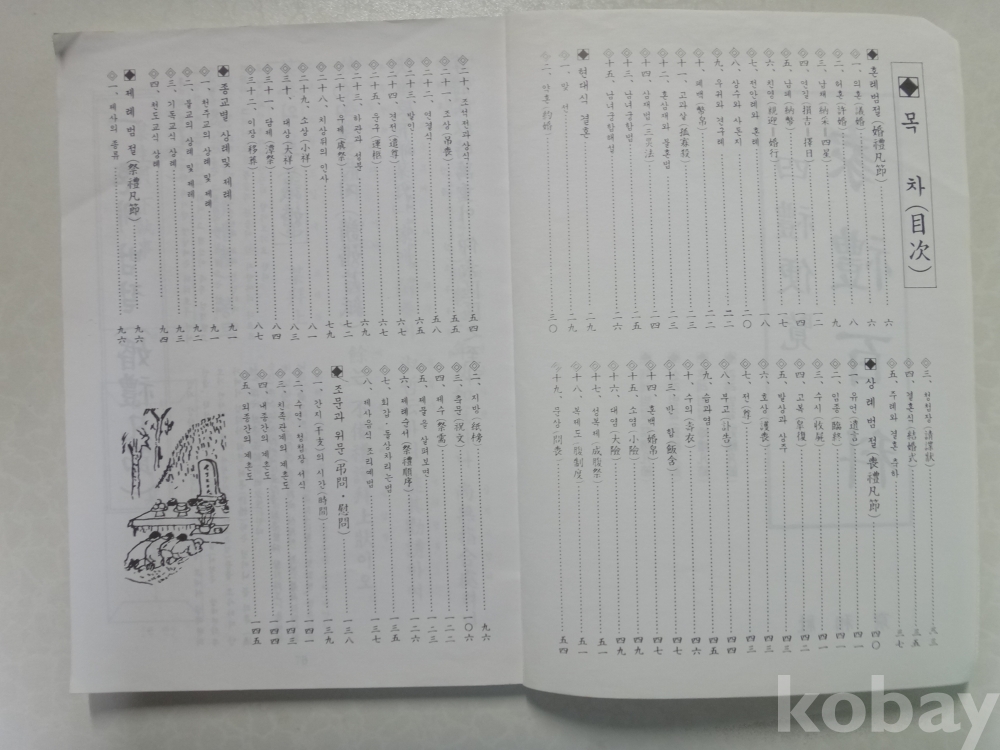 목 차(目次)
혼례범절(婚禮凡節) 六
一、의혼(議婚) 六
二、허혼(許婚) 八
三、납채(納采=四星) 九
四、연길(涓吉=擇日) 一二
五、납폐(納幣) 一四
六、친영(親迎=婚行) 一七
七、전안례와 혼례 一八
八、상수와 사돈지 二〇
九、우귀와 견구례 二二
十、폐백(幣帛) 二二
十一、고과살(孤寡殺) 二三
十二、혼삼재와 불혼법 二三
十三、삼재법(三災法) 二四
十四、남녀궁합법 二五
十五、남녀궁합해설 二六
현대식 결혼 二九
一、맞 선 二九
二、약혼(約婚) 三〇
三、청첩장(請諜狀) 三三
四、결혼식(結婚式) 三五
五、주례와 결혼 축하 三七
상례 범절(喪禮凡節) 四〇
一、유언(遺言) 四一
二、임종(臨終) 四一
三、수시(收屍) 四一
四、고복(皐復) 四二
五、발상과 상주 四三
六、호상(護喪) 四三
七、전(奠) 四四
八、부고(訃告) 四四
九、습과염 四五
十、수의(壽衣) 四六
十三、반 함(飯含) 四七
十四、혼백(婚帛) 四七
十五、소염(小險) 四八
十六、대염(大險) 四九
十七、성복제(成服祭) 五一
十八、복제도(服制度) 五一
十九、문상(問喪) 五四
二十、조석전과상식 五四
二十一、조상(吊喪) 五五
二十二、만결식 五八
二十三、발인 六五
二十四、견전(遣奠) 六七
二十五、운구(運柩) 六七
二十六、하관과 성분 六九
二十七、우제(虞祭) 七二
二十八、치상뒤의 인사 七九
二十九、소상(小祥) 八一
三十、대상(大祥) 八三
三十一、담제(潭祭) 八七
三十二、이장(移葬) 八七
종교별 상례및 제례 九一
一、천주교의 상례 및 제례 九一
二、불교의 상례 및 제례 九二
三、기독교식 상례 九三
四、천도교식 상례 九四
제 례 범 절(祭禮凡節) 九六
一、제사의 종류 九六
二、지방(紙榜) 九六
三、축문(祝文) 一〇六
四、제수(祭需) 一二二
五、제물을 살펴보면 一二三
六、제례순서(祭禮順序) 一二六
七、회갑・돌상차리는법 一三五
八、제사음식 조리예법 一三七
조문과 위문(弔問・慰問) 一三八
一、간지(干支)의 시간(時間) 一三九
二、수연・청첩장 서식 一四一
三、친족관계의 계촌도 一四三
四、내종간의 계촌도 一四四
五、외종간의 계촌도 一四五
kobay